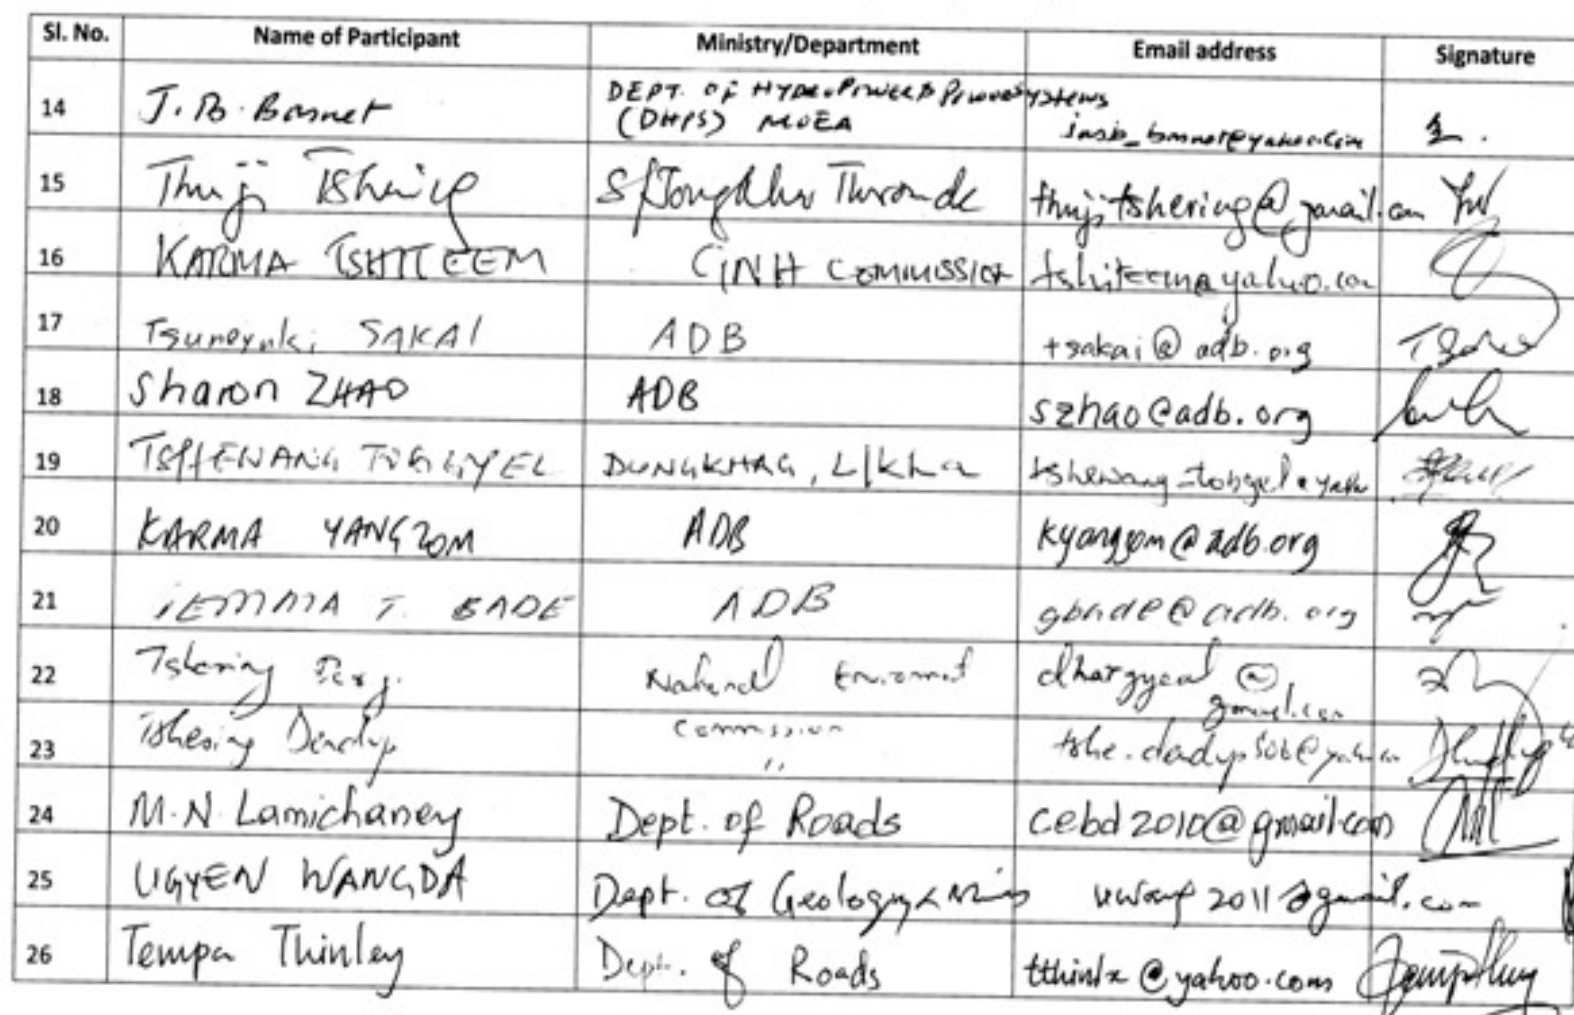 Sl. No. Name of Participant Ministry/Department Email address Signature
14 J.B. Basnet DEPT. OF HYDROPOWER & POWER SYSTEMS
(DHPS) MOEA
15 Thuji Tshering S/Jongkhar Thromde thujitshering@gmail.com
16 KARMA TSHITEEM GNH COMMISSION tshiteem@yahoo.com
17 Tsuneyuki SAKAI ADB tsakai@adb.org
18 Sharon ZHAO ADB szhao@adb.org
19 TSHEWANG TOBGYEL DUNGKHAG, L/kha tshewang_tobgyel@yahoo
20 KARMA YANGZOM ADB kyangzom@adb.org
21 T. BADE ADB gbade@adb.org
22 Tshering National Environment dhargyeal@
gmail.com
Commission
23 Tshering Dendup "
24 M.N. Lamichaney Dept. of Roads cebd2010@gmail.com
25 UGYEN WANGDA Dept. of Geology & Mines 2011@gmail.com
26 Tempa Thinley Dept. of Roads tthinlx@yahoo.com